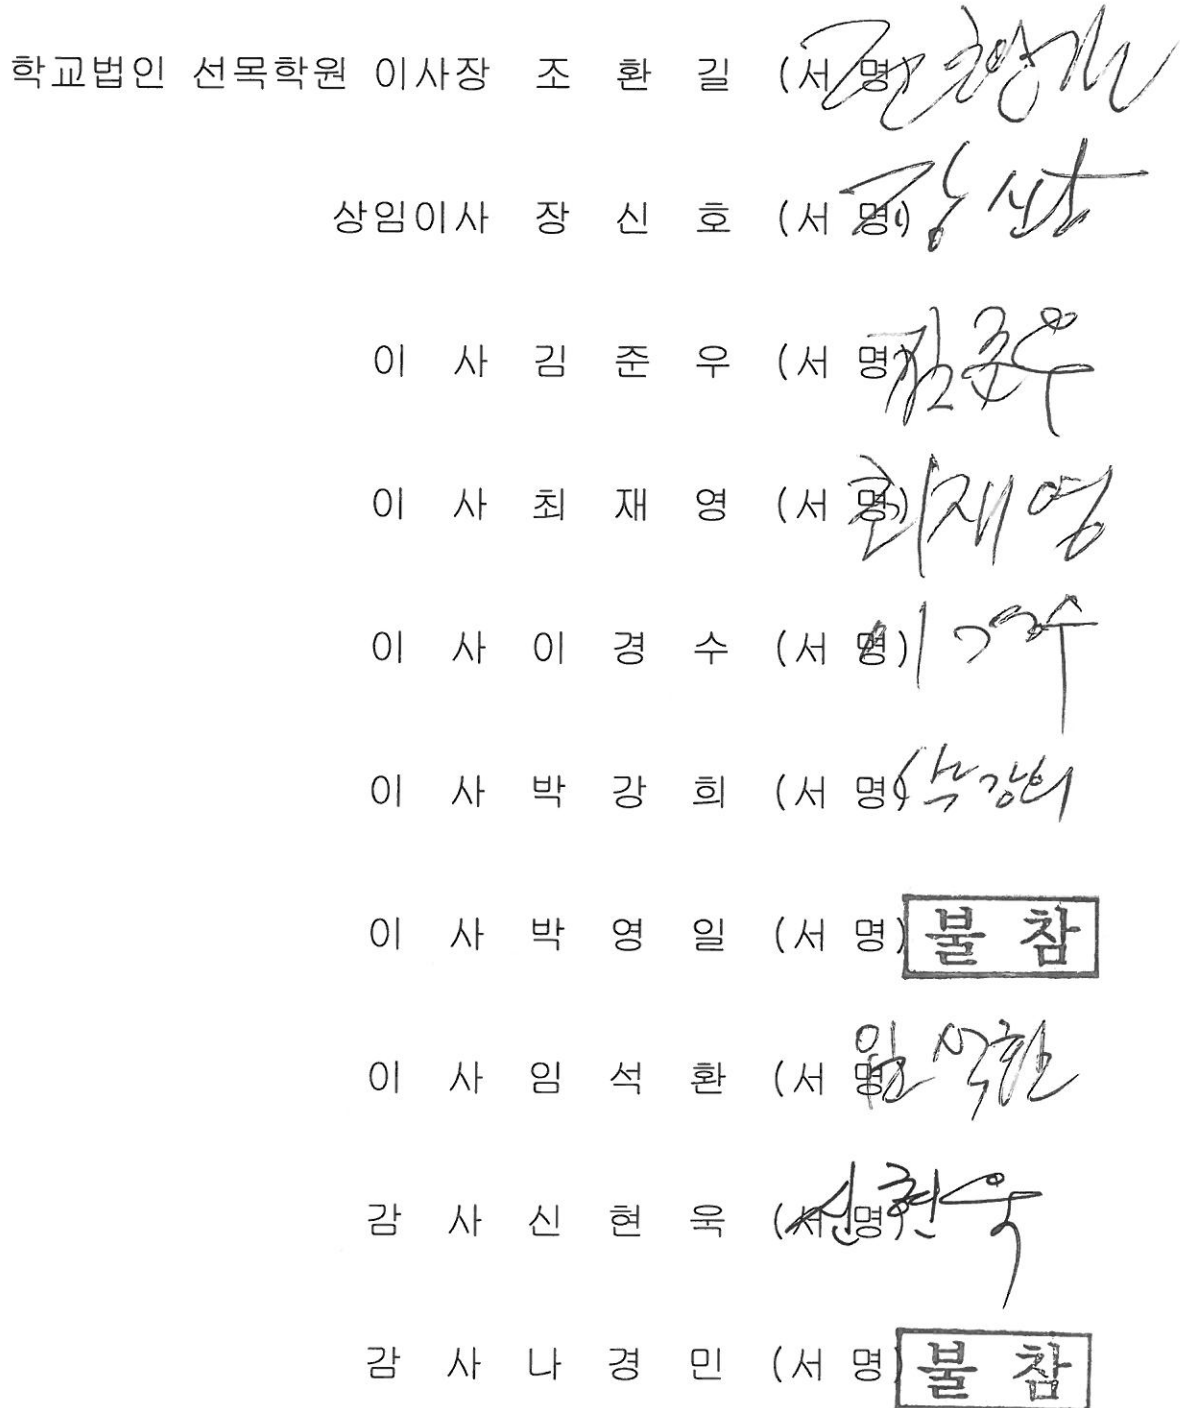 학교법인 선목학원 이사장 조 환 길 (서 명) 조환길
상임이사 장 신 호 (서 명) 장신호
이 사 김 준 우 (서 명) 김준우
이 사 최 재 영 (서 명) 최재영
이 사 이 경 수 (서 명) 이경수
이 사 박 강 희 (서 명) 박강희
이 사 박 영 일 (서 명) 불 참
이 사 임 석 환 (서 명) 임석환
감 사 신 현 욱 (서 명) 신현욱
감 사 나 경 민 (서 명) 불 참